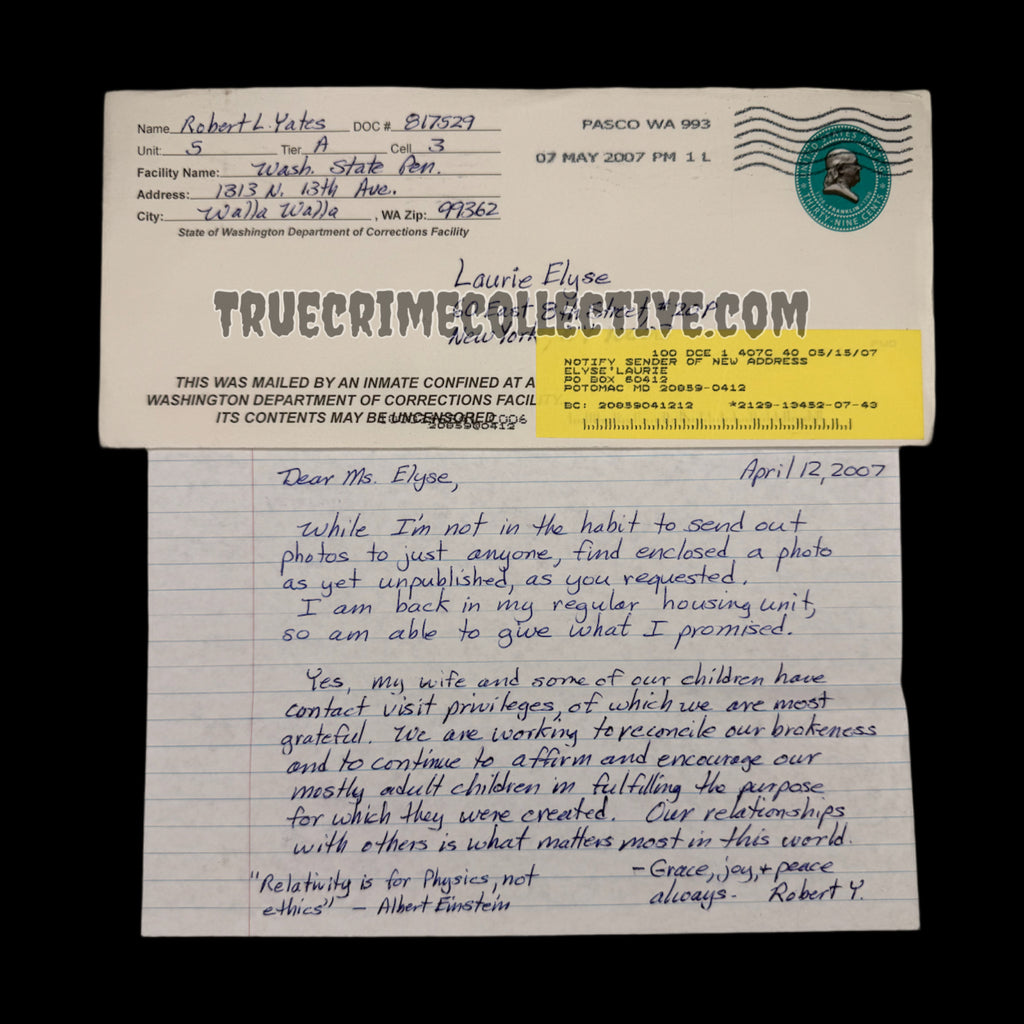 Name Robert L. Yates DOC # 817529
Unit: 5 Tier A Cell 3
Facility Name: Wash. State Pen.
Address: 1313 N. 13th Ave.
City: Walla Walla, WA Zip: 99362
State of Washington Department of Corrections Facility
PASCO WA 993
07 MAY 2007 PM 1 L
UNITED STATES
FRANKLIN
THIRTY-NINE CENTS
Laurie Elyse
TRUECRIMECOLLECTIVE.COM
East 8th Street
New York,
100 DCE 1 407C 40 05/15/07
NOTIFY SENDER OF NEW ADDRESS
ELYSE'LAURIE
PO BOX 60412
POTOMAC MD 20859-0412
BC: 20859041212 *2129-13452-07-43
THIS WAS MAILED BY AN INMATE CONFINED AT A
WASHINGTON DEPARTMENT OF CORRECTIONS FACILITY
ITS CONTENTS MAY BE UNCENSORED
2085990412
Dear Ms. Elyse,
April 12, 2007
While I'm not in the habit to send out
photos to just anyone, find enclosed a photo
as yet unpublished, as you requested.
I am back in my regular housing unit,
so am able to give what I promised.
Yes, my wife and some of our children have
contact visit privileges, of which we are most
grateful. We are working to reconcile our brokeness
and to continue to affirm and encourage our
mostly adult children in fulfilling the purpose
for which they were created. Our relationships
with others is what matters most in this world.
"Relativity is for Physics, not
ethics" – Albert Einstein
– Grace, joy, + peace
always – Robert Y.